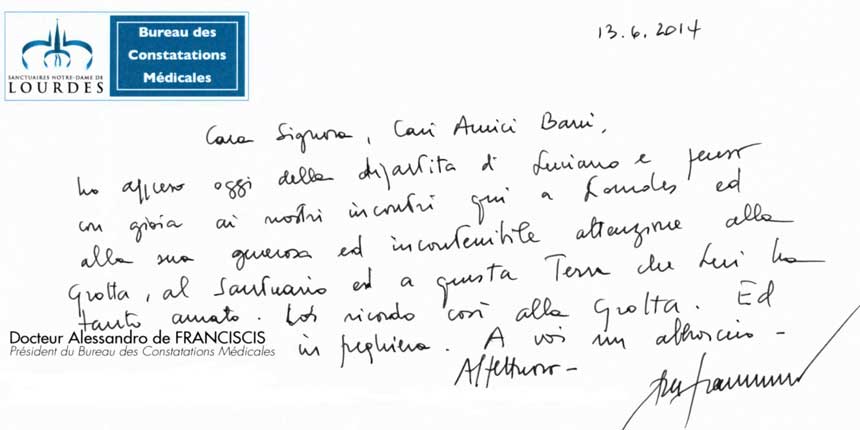 SANCTUAIRES NOTRE-DAME DE
LOURDES
Bureau des
Constatations
Médicales
13.6.2014
Cara Signora, Cari Amici Barri,
ho appreso oggi della dipartita di Luciano e penso
con gioia ai nostri incontri qui a Lourdes ed
alla sua generosa ed incontenibile attenzione alla
Grotta, al Santuario ed a questa Terra che Lui ha
tanto amato. ricordo così alla Grotta. Ed
in preghiera. A voi un abbraccio -
Affettuoso -
Docteur Alessandro de FRANCISCIS
Président du Bureau des Constatations Médicales